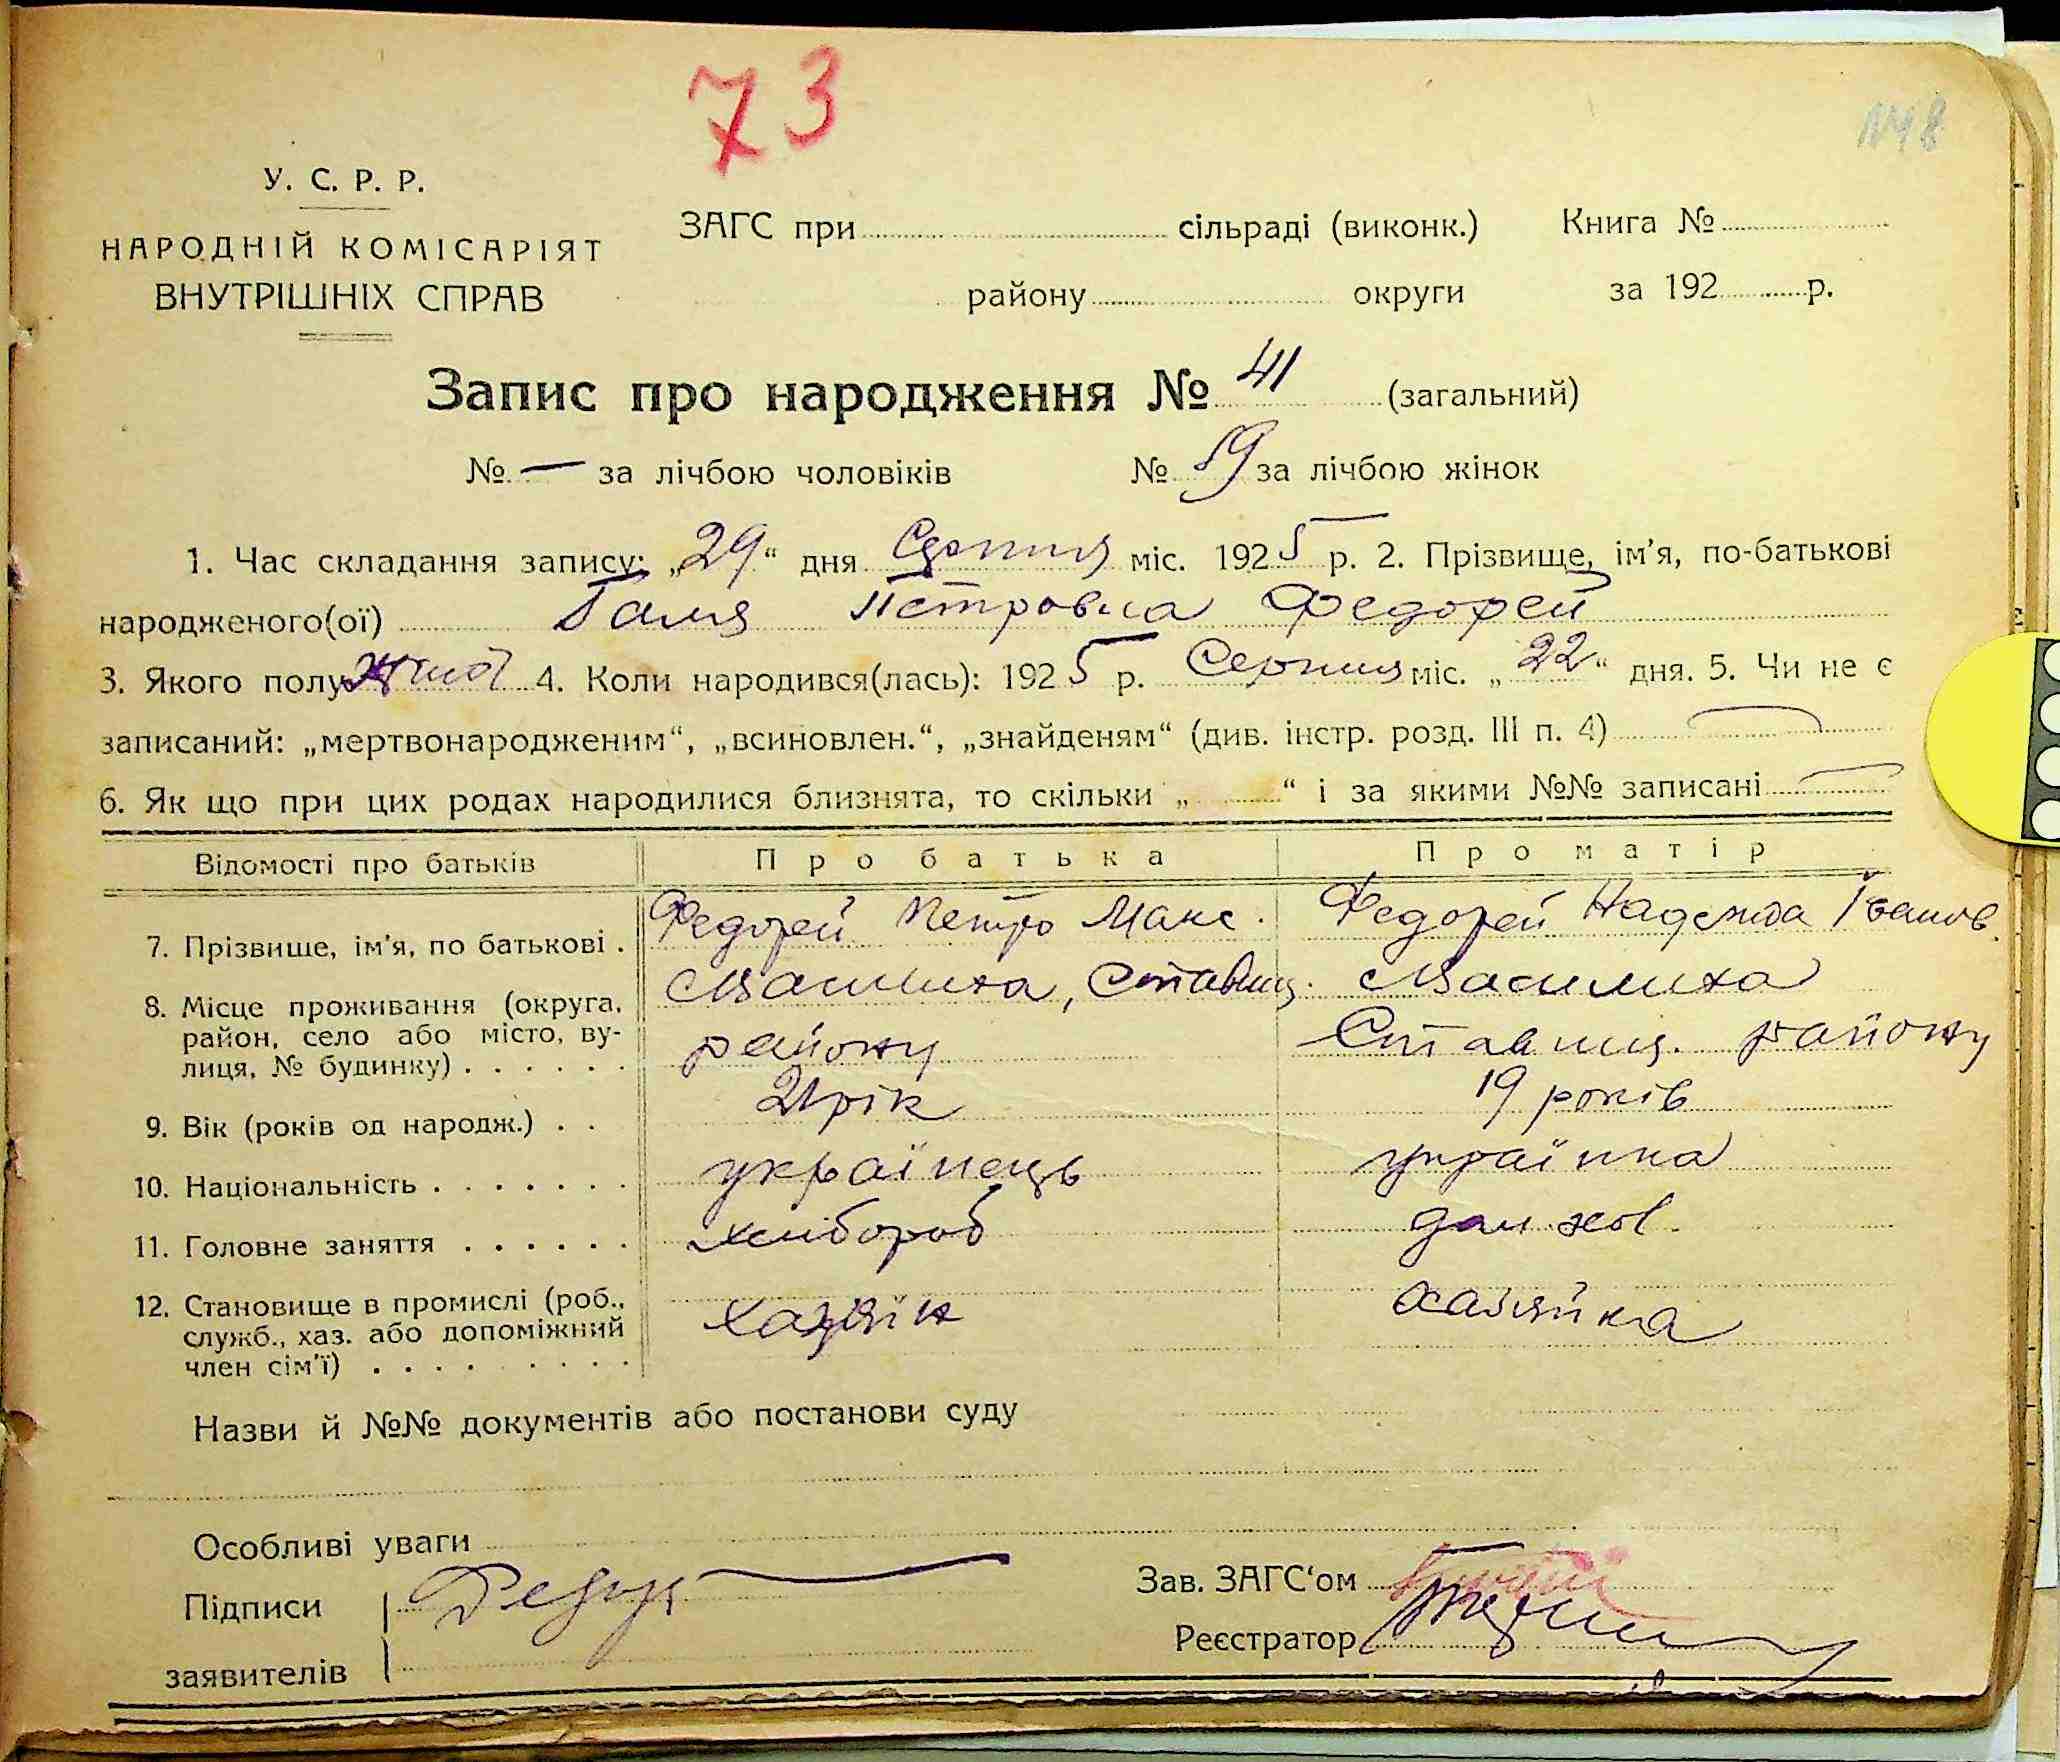 73
У. С. Р. Р.
НАРОДНІЙ КОМІСАРІЯТ
ВНУТРІШНІХ СПРАВ
ЗАГС при сільраді (виконк.) Книга №
району округи за 192 р.
Запис про народження № 41 (загальний)
№ — за лічбою чоловіків № 19 за лічбою жінок
1. Час складання запису: „29“ дня Серпня міс. 1925 р. 2. Прізвище, ім'я, по-батькові
народженого(ої) Галя Петровна Федорей
3. Якого полу жіноч 4. Коли народився(лась): 1925 р. Серпня міс. „22“ дня. 5. Чи не є
записаний: „мертвонародженим“, „всиновлен.“, „знайденям“ (див. інстр. розд. III п. 4)
6. Як що при цих родах народилися близнята, то скільки „ “ і за якими №№ записані
Відомості про батьків Про батька Про матір
7. Прізвище, ім'я, по батькові . Федорей Петро Макс. Федорей Надежда Іванов.
8. Місце проживання (округа, Василиха, Ставищ. Василиха
район, село або місто, ву- району Ставищ. району
лиця, № будинку) . . . . . .
9. Вік (років од народж.) . . 21 рік 19 років
10. Національність . . . . . . . українець українка
11. Головне заняття . . . . . . хлібороб дом. хоз.
12. Становище в промислі (роб., хазяїн хазяйка
служб., хаз. або допоміжний
член сім'ї) . . . . . . . . .
Назви й №№ документів або постанови суду
Особливі уваги
Підписи Федор
заявителів
Зав. ЗАГС'ом
Реєстратор